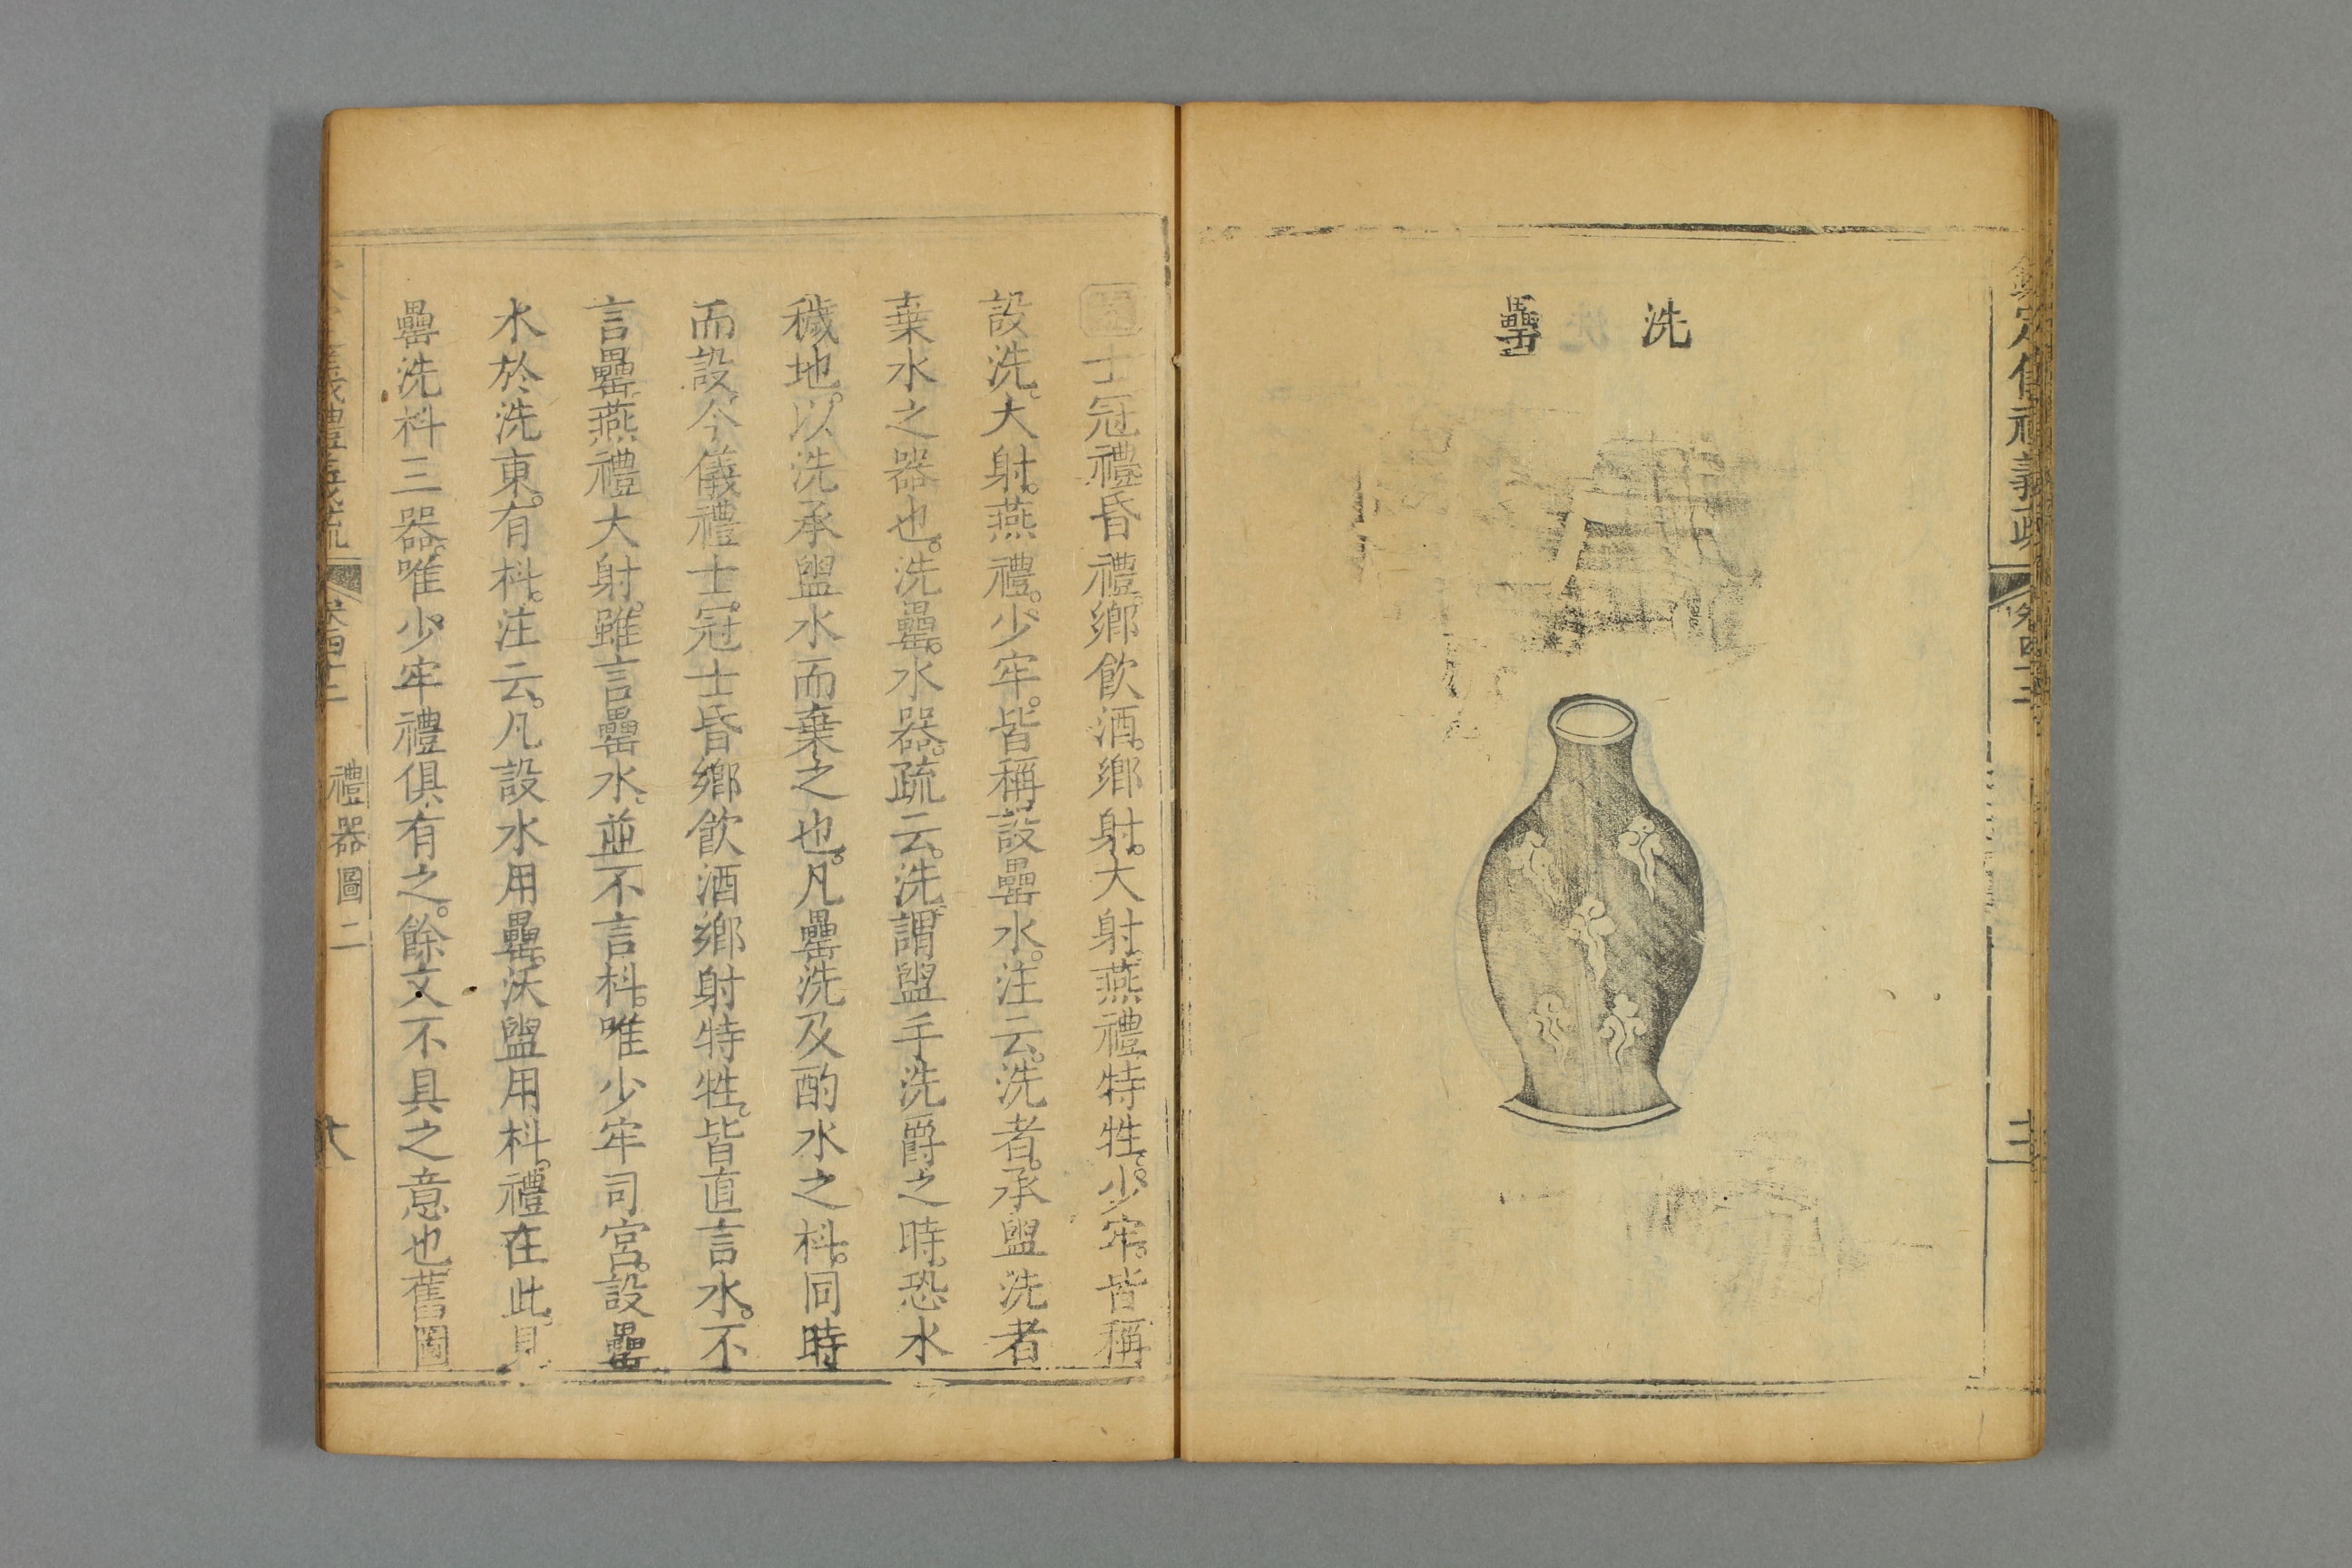 洗
洗罍
欽定儀禮義疏
卷四十二
士冠禮昏禮。鄉飲酒。鄉射。大射。燕禮特牲。少牢。皆稱
設洗。大射。燕禮。少牢。皆稱設罍水。注云。洗者。承盥洗者
棄水之器也。洗罍。水器。疏云。洗謂盥手洗爵之時。恐水
穢地。以洗承盥水而棄之也。凡罍洗及酌水之枓。同時
而設。今儀禮士冠士昏鄉飲酒鄉射特牲。皆直言水。不
言罍燕禮大射。雖言罍水。並不言枓。唯少牢司宮。設罍
水於洗東。有枓。注云。凡設水用罍。沃盥用枓。禮在此。見
罍洗枓三器。唯少牢禮俱有之。餘文不具之意也舊圖
儀禮義疏
卷四十二
禮器圖二